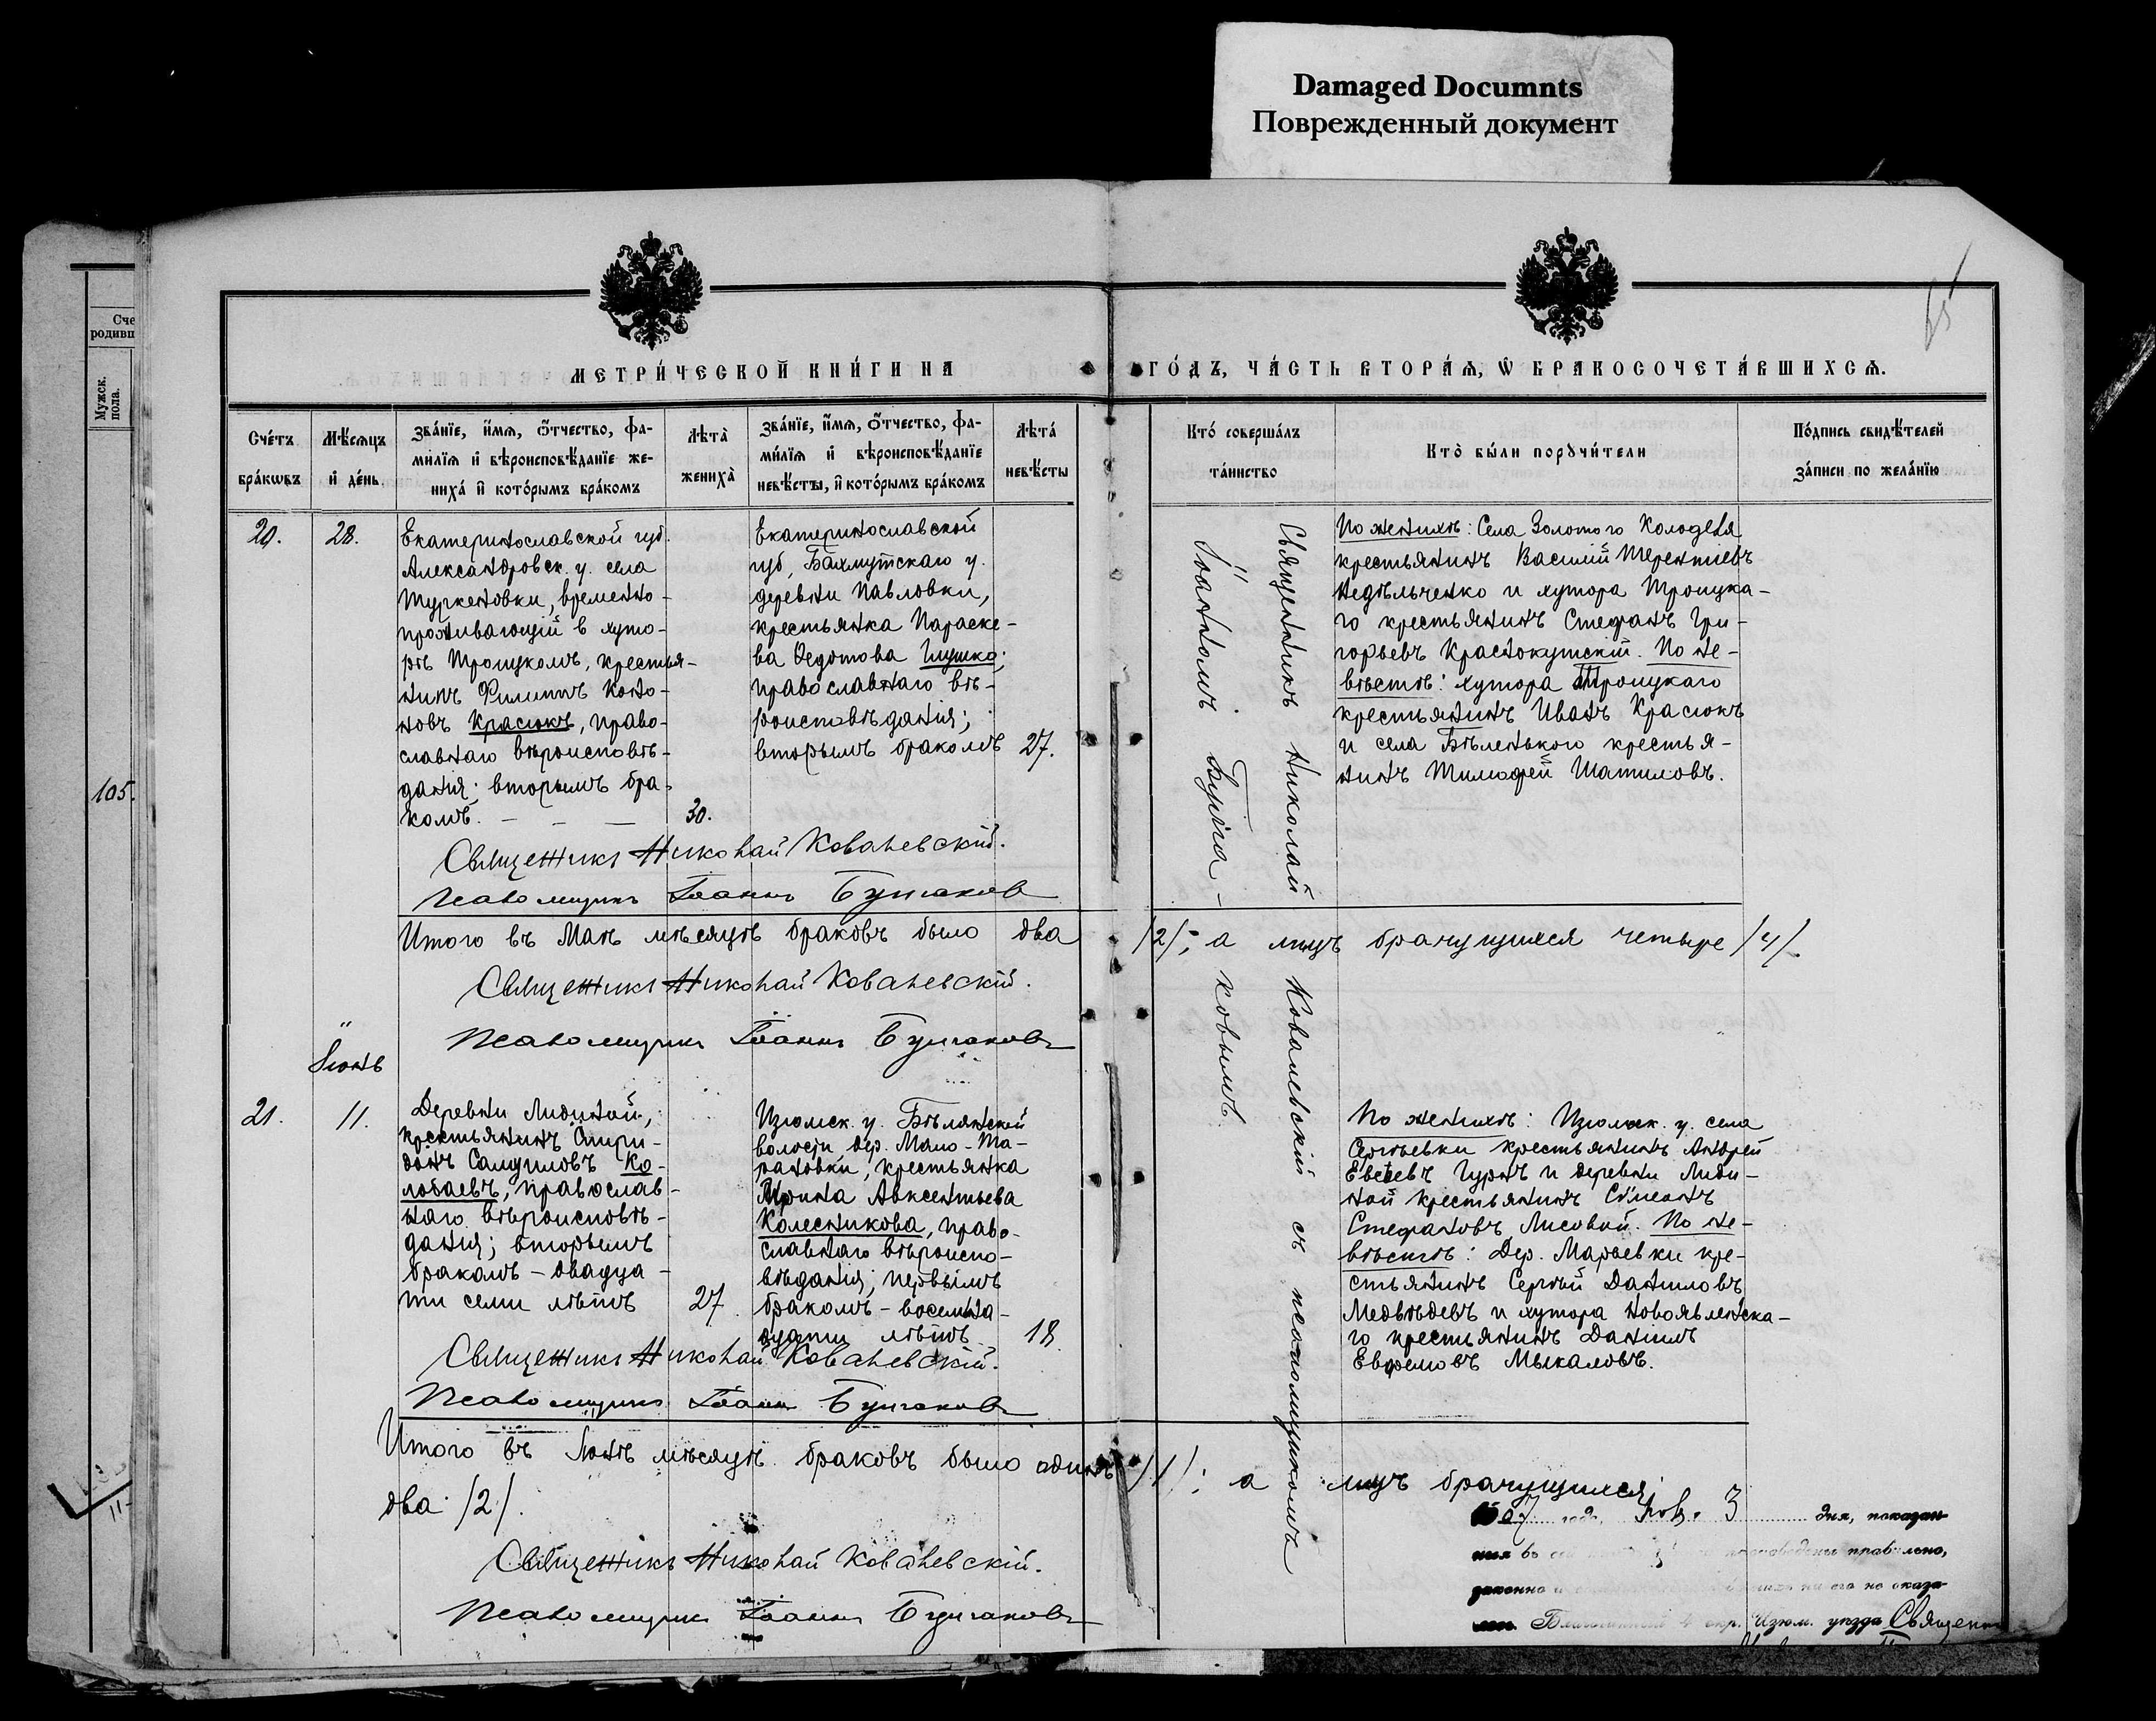 Damaged Documnts
Поврежденный документ
Сче
родивш
Мужск.
пола.
105.
МЕТРИ́ЧЕСКОЙ КНИ́ГИ НА
ГО́ДЪ, ЧА́СТЬ ВТОРА́Ѧ, Ѽ БРАКОСОЧЕТА́ВШИХСѦ.
Сче́тъ
бра́кѡвъ
Мѣ́сѧцъ
и҆ де́нь.
Зва́нїе, и҆́мѧ, ѻ҆́тчество, фа-
ми́лїѧ и҆ вѣроисповѣ́данїе же-
ниха̀ и҆ кото́рымъ бра́комъ
Лѣта̀
жениха̀
Зва́нїе, и҆́мѧ, ѻ҆́тчество, фа-
ми́лїѧ и҆ вѣроисповѣ́данїе
невѣ́сты, и҆ кото́рымъ бра́комъ
Лѣта́
невѣ́сты
Кто́ соверша́лъ
та́инство
Кто̀ бы́ли порꙋчи́тели
По́дпись свидѣ́телей
за́писи по жела́нїю
20.
28.
Екатеринославской губ.
Александровск. у. села
Туркеновки, временно-
проживающій в хуто-
рѣ Троцкомъ, крестья-
нинъ Филиппъ Коно-
новъ Красюкъ, право-
славнаго вѣроисповѣ-
данія; вторымъ бра-
комъ. — — —
30.
Екатеринославской
губ, Бахмутскаго у.
деревни Павловки,
крестьянка Параске-
ва Ѳедотова Глушко;
православнаго вѣ-
роисповѣданія;
вторымъ бракомъ
27.
Священникъ Николай Ковалевскій съ псаломщикомъ
Іоанномъ Булгаковымъ.
По женихѣ: Села Золотого Колодезя
крестьянинъ Василій Терентіевъ
Недѣльченко и хутора Троицка-
го крестьянинъ Стефанъ Гри-
горьевъ Краснокутскій. По не-
вѣстѣ: хутора Троицкаго
крестьянинъ Иванъ Красюкъ
и села Бѣленького крестья-
нинъ Тимофей Шатиловъ.
Священникъ Николай Ковалевскій.
Псаломщикъ Іоаннъ Булгаковъ
Итого въ Маѣ мѣсяцѣ браковъ было два /2/; а лицъ брачущихся четыре /4/.
Священникъ Николай Ковалевскій.
Псаломщикъ Іоаннъ Булгаковъ
Іюнь
21.
11.
Деревни Лидиной,
крестьянинъ Спири-
донъ Самуиловъ Ко-
лобаевъ, православ-
наго вѣроисповѣ-
данія; вторымъ
бракомъ – двадца-
ти семи лѣтъ
27.
Изюмск. у. Бѣлянской
волости дер. Мало-Та-
рановки, крестьянка
Ирина Авксентьева
Колесникова, право-
славнаго вѣроиспо-
вѣданія; первымъ
бракомъ – восемьна-
дцати лѣтъ
18.
По женихѣ: Изюмск. у. села
Сергѣевки крестьянинъ Андрей
Евсеевъ Гурнъ и деревни Лиди-
ной крестьянинъ Сѵмеонъ
Стефановъ Лисовой. По не-
вѣстѣ: Дер. Марьевки кре-
стьянинъ Сергѣй Даниловъ
Медвѣдевъ и хутора Новоявленска-
го крестьянинъ Даніилъ
Евфемовъ Мыкаловъ.
Священникъ Николай Ковалевскій.
Псаломщикъ Іоаннъ Булгаковъ
Итого въ Іюнѣ мѣсяцѣ браковъ было одинъ /1/; а лицъ брачущихся;
два /2/.
Священникъ Николай Ковалевскій.
Псаломщикъ Іоаннъ Булгаковъ
1907 года. Нов. 3 дня, показан-
ныя во правильно,
законно и не оказа-
Благочинный 4 окр. Изюм. уѣзда Священ